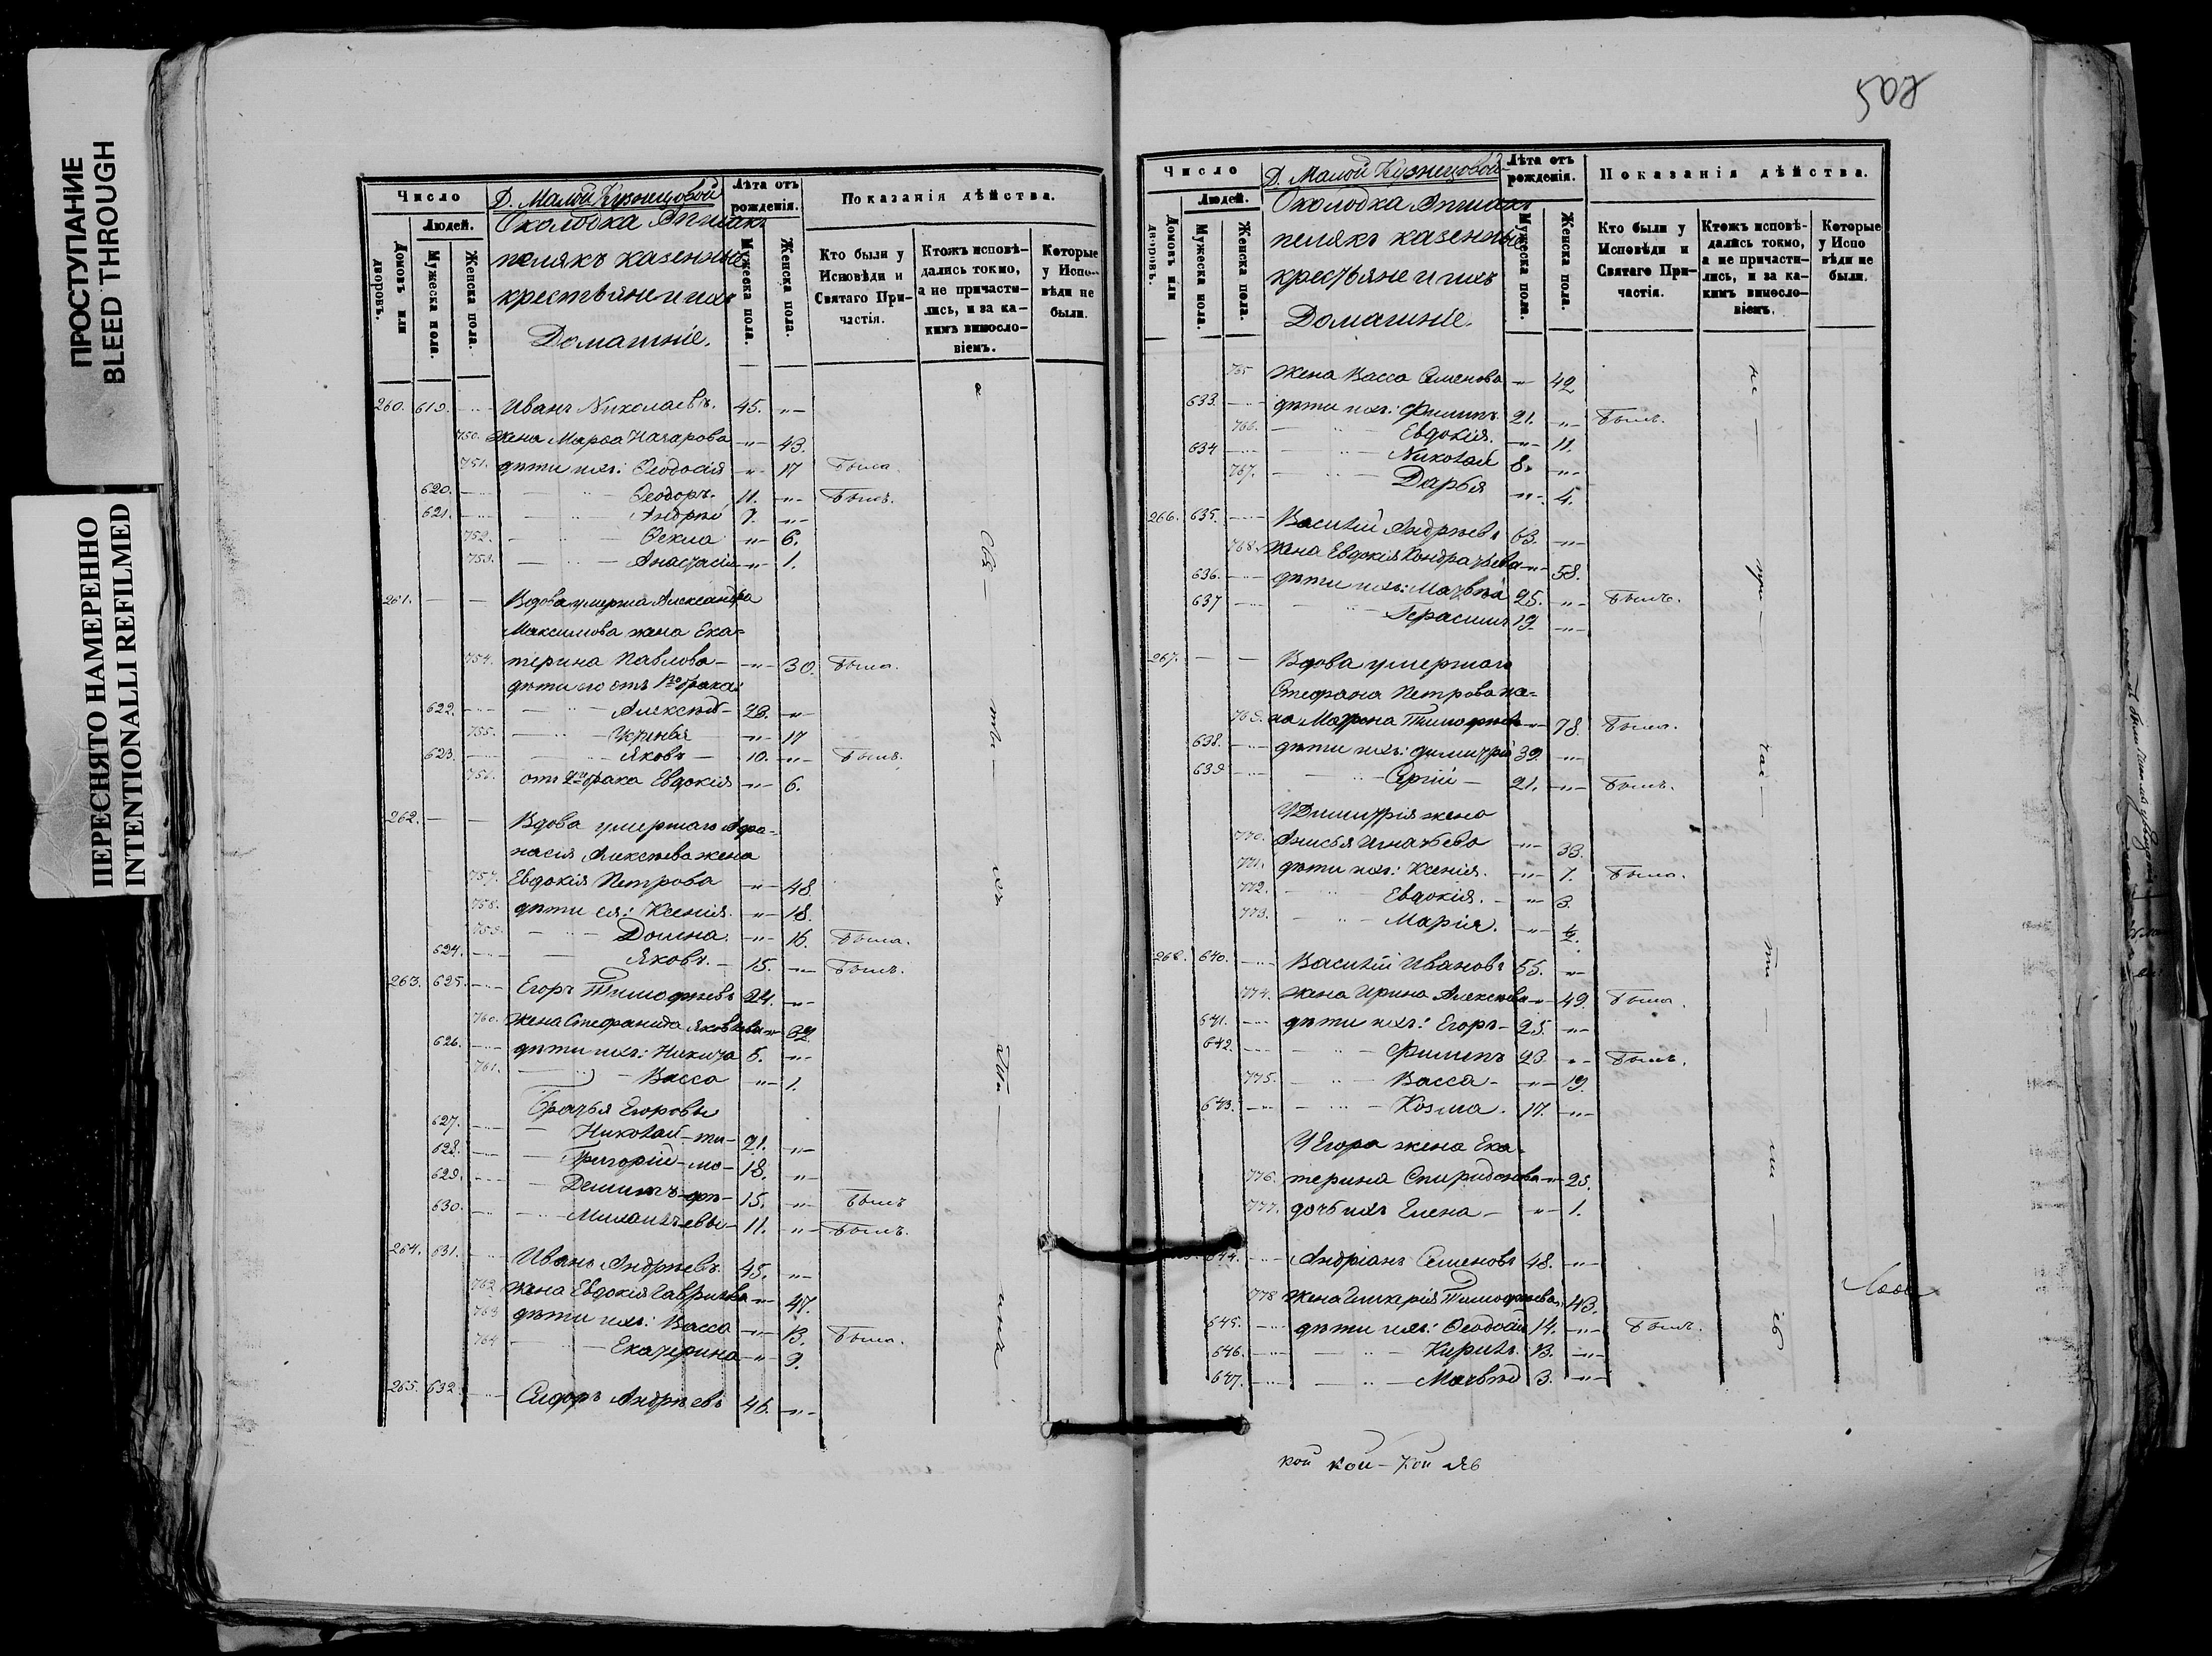 ПРОСТУПАНИЕ
BLEED THROUGH
ПЕРЕСНЯТО НАМЕРЕННО
INTENTIONALLI REFILMED
Число
Людей.
Домовъ или дворовъ.
Мужеска пола.
Женска пола.
Д. Малой Кузнецовой
Околодка
казенные
крестьяне и ихъ
Домашніе.
Лѣта отъ рожденія.
Мужеска пола.
Женска пола.
Показанія дѣйства.
Кто были у Исповѣди и Святаго Причастія.
Ктожъ исповѣдались токмо, а не причастились, и за какимъ винословіемъ.
Которые у Исповѣди не были.
260. 619. Иванъ Николаевъ. 45. -"-
750. жена Марѳа Назарова -"- 43.
751. дѣти ихъ: Ѳеодосія -"- 17 Была.
620. Ѳеодоръ. 11. -"- Былъ.
621. Андрей 7. -"-
752. Ѳекла -"- 6.
753. Анастасія -"- 1.
261. Вдова умерша Александра
Максимова жена Ека=
754. терина Павлова -"- 30. Была.
дѣти его отъ 1го брака:
622. Алексѣй 23. -"-
755. -"- 17
623. Яковъ 10. -"- Былъ.
756. отъ 2го брака Евдокія -"- 6.
262. Вдова умершаго Аѳа=
насія Алексѣева жена
757. Евдокія Петрова -"- 48
758. дѣти ея: Ксенія. -"- 18.
759. Домна. -"- 16. Была.
624. Яковъ. 15. -"- Былъ.
263. 625. Егоръ Тимофѣевъ 24. -"-
760. жена Стефанида Яковлева -"- 32
626. дѣти ихъ: Никита 5. -"-
761. Васса -"- 1.
Братья Егоровы
627. Николай - ти- 21. -"-
628. Григорій - мо- 18. -"-
629. 15. -"- Былъ
630. Михаилъ евы- 11. -"- Былъ.
264. 631. Иванъ Андрѣевъ. 45. -"-
762 жена Евдокія Гаврилова -"- 47.
763 дѣти ихъ: Васса -"- 13. Была.
764 Екатерина -"- 9.
265. 632. Сидоръ Андрѣевъ 46. -"-
Число
Людей.
Домовъ или дворовъ.
Мужеска пола.
Женска пола.
Д. Малой Кузнецовой
Околодка
казенные
крестьяне и ихъ
Домашніе.
Лѣта отъ рожденія.
Мужеска пола.
Женска пола.
Показанія дѣйства.
Кто были у Исповѣди и Святаго Причастія.
Ктожъ исповѣдались токмо, а не причастились, и за какимъ винословіемъ.
Которые у Исповѣди не были.
765 жена Васса Семенова -"- 42
633. дѣти ихъ: Филипъ. 21. -"- Былъ.
766. Евдокія. -"- 11.
634 Николай 8. -"-
767. Дарья -"- 4.
266. 635. Василій Андрѣевъ 63. -"-
768. жена Евдокія Кондратьева -"- 58.
636. дѣти ихъ: Матвѣй 25. -"- Былъ.
637 Герасимъ 19. -"-
267. Вдова умершаго
Стефана Петрова же=
769. на Тимофѣева -"- 78. Была.
638. дѣти ихъ: Димитрій 39. -"-
639 Сергій 21. -"- Былъ.
У Димитрія жена
770. Анисья Игнатьева -"- 33.
771. дѣти ихъ: Ксенія. -"- 7. Была.
772. Евдокія. -"- 3.
773. Марія. -"-
268. 640. Василій Ивановъ 55. -"-
774. жена Ирина Алексѣева -"- 49. Была.
641. дѣти ихъ: Егоръ- 25. -"-
642. Филипъ 23. -"- Былъ.
775. Васса- -"- 19.
643. Козма. 17. -"-
У Егора жена Ека-
776. терина Спиридонова -"- 25.
777. дочь ихъ Елена- -"- 1.
644. Андріанъ Семеновъ 48. -"-
778 жена Гликерія Тимофѣева 43.
645. дѣти ихъ: Ѳеодосій 14. -"- Былъ.
646. Кирилъ. 13. -"-
647. Матвѣй 3. -"-
кой кой-кой